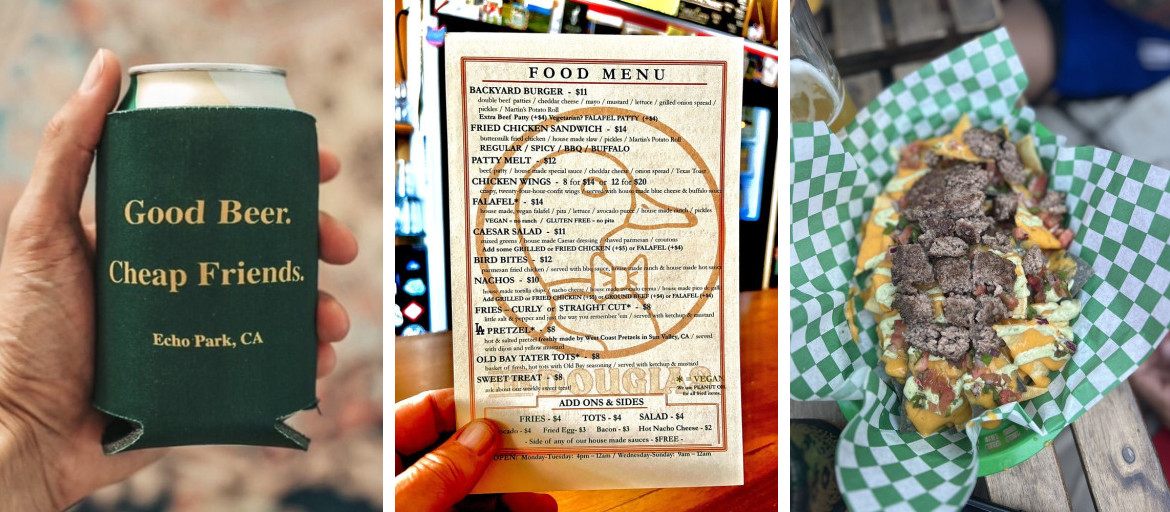 Good Beer.
Cheap Friends.
Echo Park, CA
FOOD MENU
BACKYARD BURGER - $11
double beef patties / cheddar cheese / mayo / mustard / lettuce / grilled onion spread /
pickles / Martin's Potato Roll
Extra Beef Patty (+$4) Vegetarian? FALAFEL PATTY (+$4)
FRIED CHICKEN SANDWICH - $14
buttermilk fried chicken / house made slaw / pickles / Martin's Potato Roll
REGULAR / SPICY / BBQ / BUFFALO
PATTY MELT - $12
beef patty / house made special sauce / cheddar cheese / onion spread / Texas Toast
CHICKEN WINGS - 8 for $14 or 12 for $20
crispy, twenty-four-hour-confit wings / served with house made blue cheese & buffalo sauce
FALAFEL* - $14
house made, vegan falafel / pita / lettuce / avocado puree / house made ranch / pickles
VEGAN - no ranch / GLUTEN FREE - no pita
CAESAR SALAD - $11
mixed greens / house made Caesar dressing / shaved parmesan / croutons
Add some GRILLED or FRIED CHICKEN (+$5) or FALAFEL (+$4)
BIRD BITES - $12
parmesan fried chicken / served with bbq sauce, house made ranch & house made hot sauce
NACHOS - $10
house made tortilla chips / nacho cheese / house made avocado crema / house made pico de gallo
Add GRILLED or FRIED CHICKEN (+$5) or GROUND BEEF (+$4) or FALAFEL (+$4)
FRIES - CURLY or STRAIGHT CUT* - $8
little salt & pepper and just the way you remember 'em / served with ketchup & mustard
LA PRETZEL* - $8
hot & salted pretzel freshly made by West Coast Pretzels in Sun Valley, CA / served
with dijon and yellow mustard
OLD BAY TATER TOTS* - $8
basket of fresh, hot tots with Old Bay seasoning / served with ketchup & mustard
SWEET TREAT - $8
ask about our weekly sweet treat!
DOUGLAS
* = VEGAN
We use PEANUT OIL
for all fried items.
ADD ONS & SIDES
FRIES - $4 TOTS - $4 SALAD - $4
- $4 Fried Egg- $3 Bacon - $3 Hot Nacho Cheese - $2
- Side of any of our house made sauces - $FREE -
OPEN: Monday-Tuesday: 4pm - 12am / Wednesday-Sunday: 9am - 12am